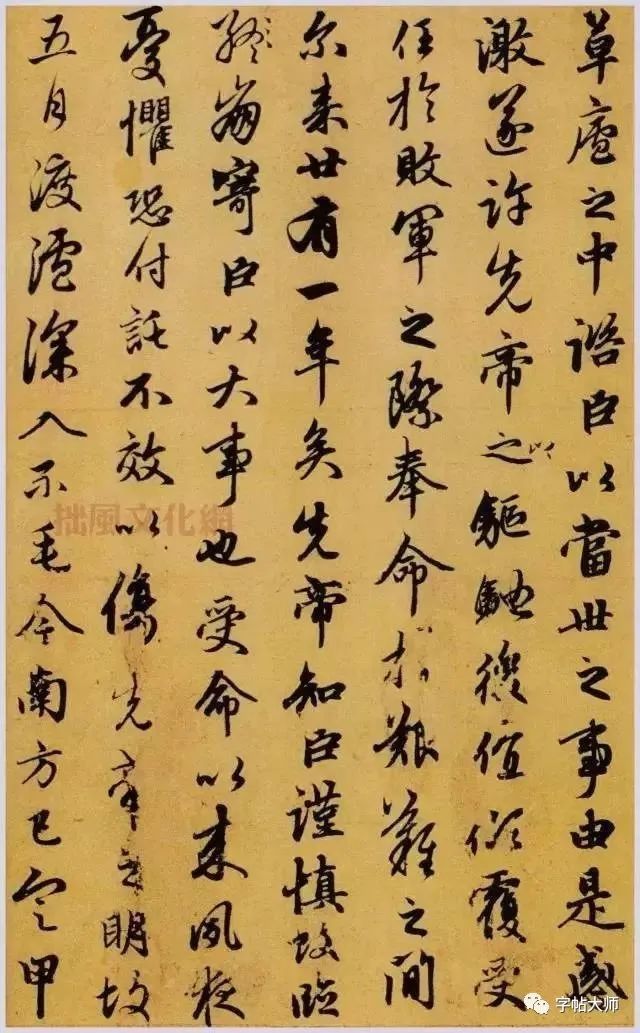 草廬之中諮臣以當世之事由是感
激遂許先帝之以驅馳後值傾覆受
任於敗軍之際奉命於艱難之間
尔来廿有一年矣先帝知臣謹慎故臨
終崩寄臣以大事也受命以来夙夜
憂懼恐付託不效以傷先帝之明故
五月渡瀘深入不毛今南方已定甲
拙風文化網
字帖大师